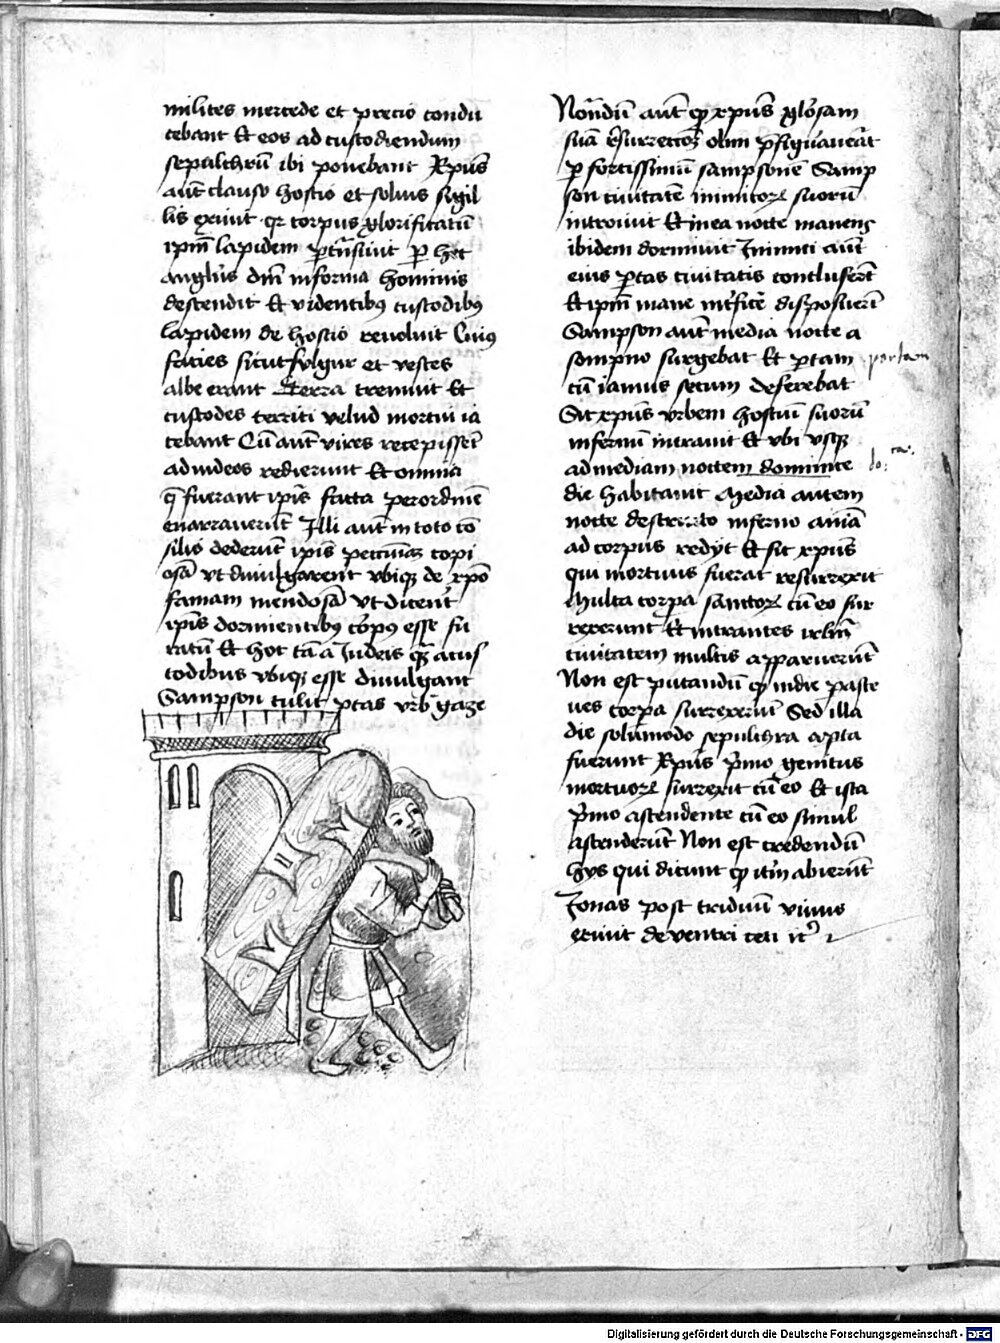 milites mercede et precio condu
cebant Et eos ad custodiendum
sepulchrū ibi ponebant Xpūs
aut̄ clauso hostio et soluis sigil
lis exiuit qr corpus glorificatū
ipm̄ lapidem ptrāsiuit p hoc
anglūs dm̄ in forma hominis
descendit Et videntibꝰ custodibꝰ
lapidem de hostio reuoluit Cuiꝰ
facies sicut fulgur et vestes
albe erant Terra tremuit Et
custodes territi velud mortui ia
cebant Cū aut̄ vires recepisset̄
ad iudeos redierunt Et omnia
q̄ fuerant ipīs facta per ordinē
enarrauerūt Illi aut̄ in toto cō
silio dederūt ipīs pecuniaꝫ copi
osā vt diuulgarent vbiqꝫ de xpō
famam mendosā vt dicerēt
ipīs dormientibꝰ corpꝰ esse fu
ratū Et hoc tā a Iudeis qꝫ a cus
todibus vbiqꝫ esse diuulgant
Sampson tulit ptas vrb gaze
Nondū aut̄ qp xpūs glōsam
suā resurrectōꝫ olim pfigurauerat
p fortissimū sampsonē Samp
son ciuitatē inimicoꝝ suorū
introiuit Et in ea nocte manens
ibidem dormiuit Inimici aut̄
eius ptas ciuitatis concluserūt
Et ipm̄ mane intficē disposuerūt
Sampson aut̄ media nocte a
sompno surgebat Et ptam
portam
cū ianuis secum deferebat
Sic xpūs vrbem hostiū suorū
infernū intrauit Et vbi vsqꝫ
ad mediam noctem dominice
die habitauit Media autem
nocte destructo inferno aniā
ad corpus redijt Et sic xpūs
qui mortuus fuerat resurrexit
Multa corpa sanctoꝝ cū eo sur
rexerunt Et intrantes irlm̄
ciuitatem multis apparuerūt
Non est putandū qp in die pasce
ues corpa surrexerūt Sed illa
die solūmodo sepulchra apta
fuerunt Xpūs pmo genitus
mortuoꝝ surrexit cū eo Et ista
pmo ascendente cū eo simul
ascenderūt Non est credendū
hys qui dicunt qp itm̄ abierūt
Jonas post triduū viuus
exiuit de ventri ceti
Digitalisierung gefördert durch die Deutsche Forschungsgemeinschaft - DFG